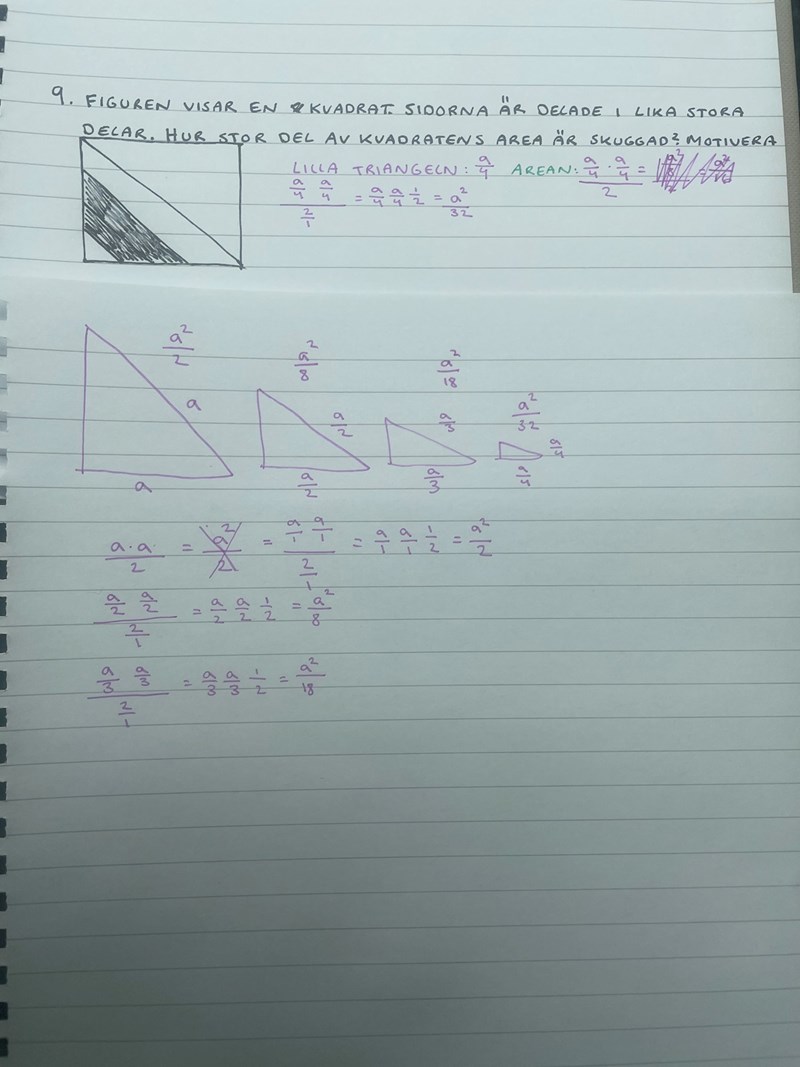 9. FIGUREN VISAR EN KVADRAT. SIDORNA ÄR DELADE I LIKA STORA
DELAR. HUR STOR DEL AV KVADRATENS AREA ÄR SKUGGAD? MOTIVERA
LILLA TRIANGELN: a/4 AREAN: (a/4 · a/4)/2 =
(a/4 a/4)/(2/1) = a/4 a/4 1/2 = a²/32
a²/2 a²/8 a²/18 a²/32
a a/2 a/3 a/4
a a/2 a/3 a/4
(a·a)/2 = a²/2 = (a/1 a/1)/(2/1) = a/1 a/1 1/2 = a²/2
(a/2 a/2)/(2/1) = a/2 a/2 1/2 = a²/8
(a/3 a/3)/(2/1) = a/3 a/3 1/2 = a²/18